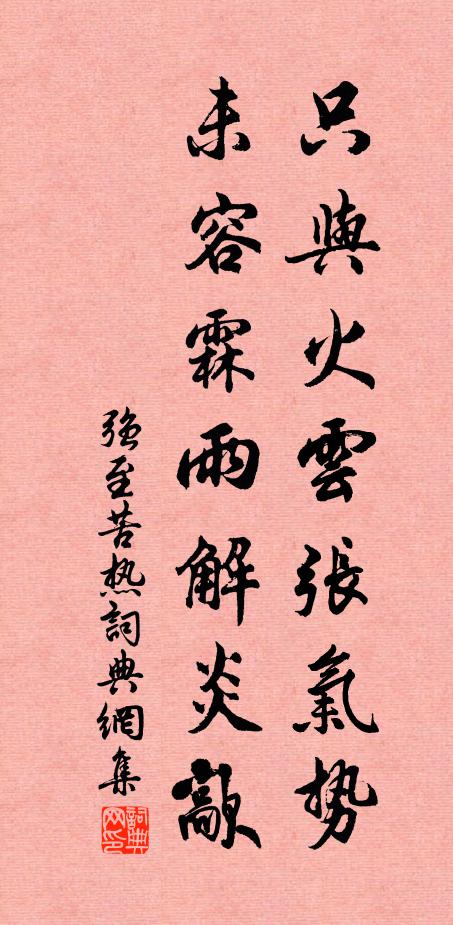 只與火雲張氣势
未容霖雨解炎歊
強至苦热詞典網集
詞典
网印